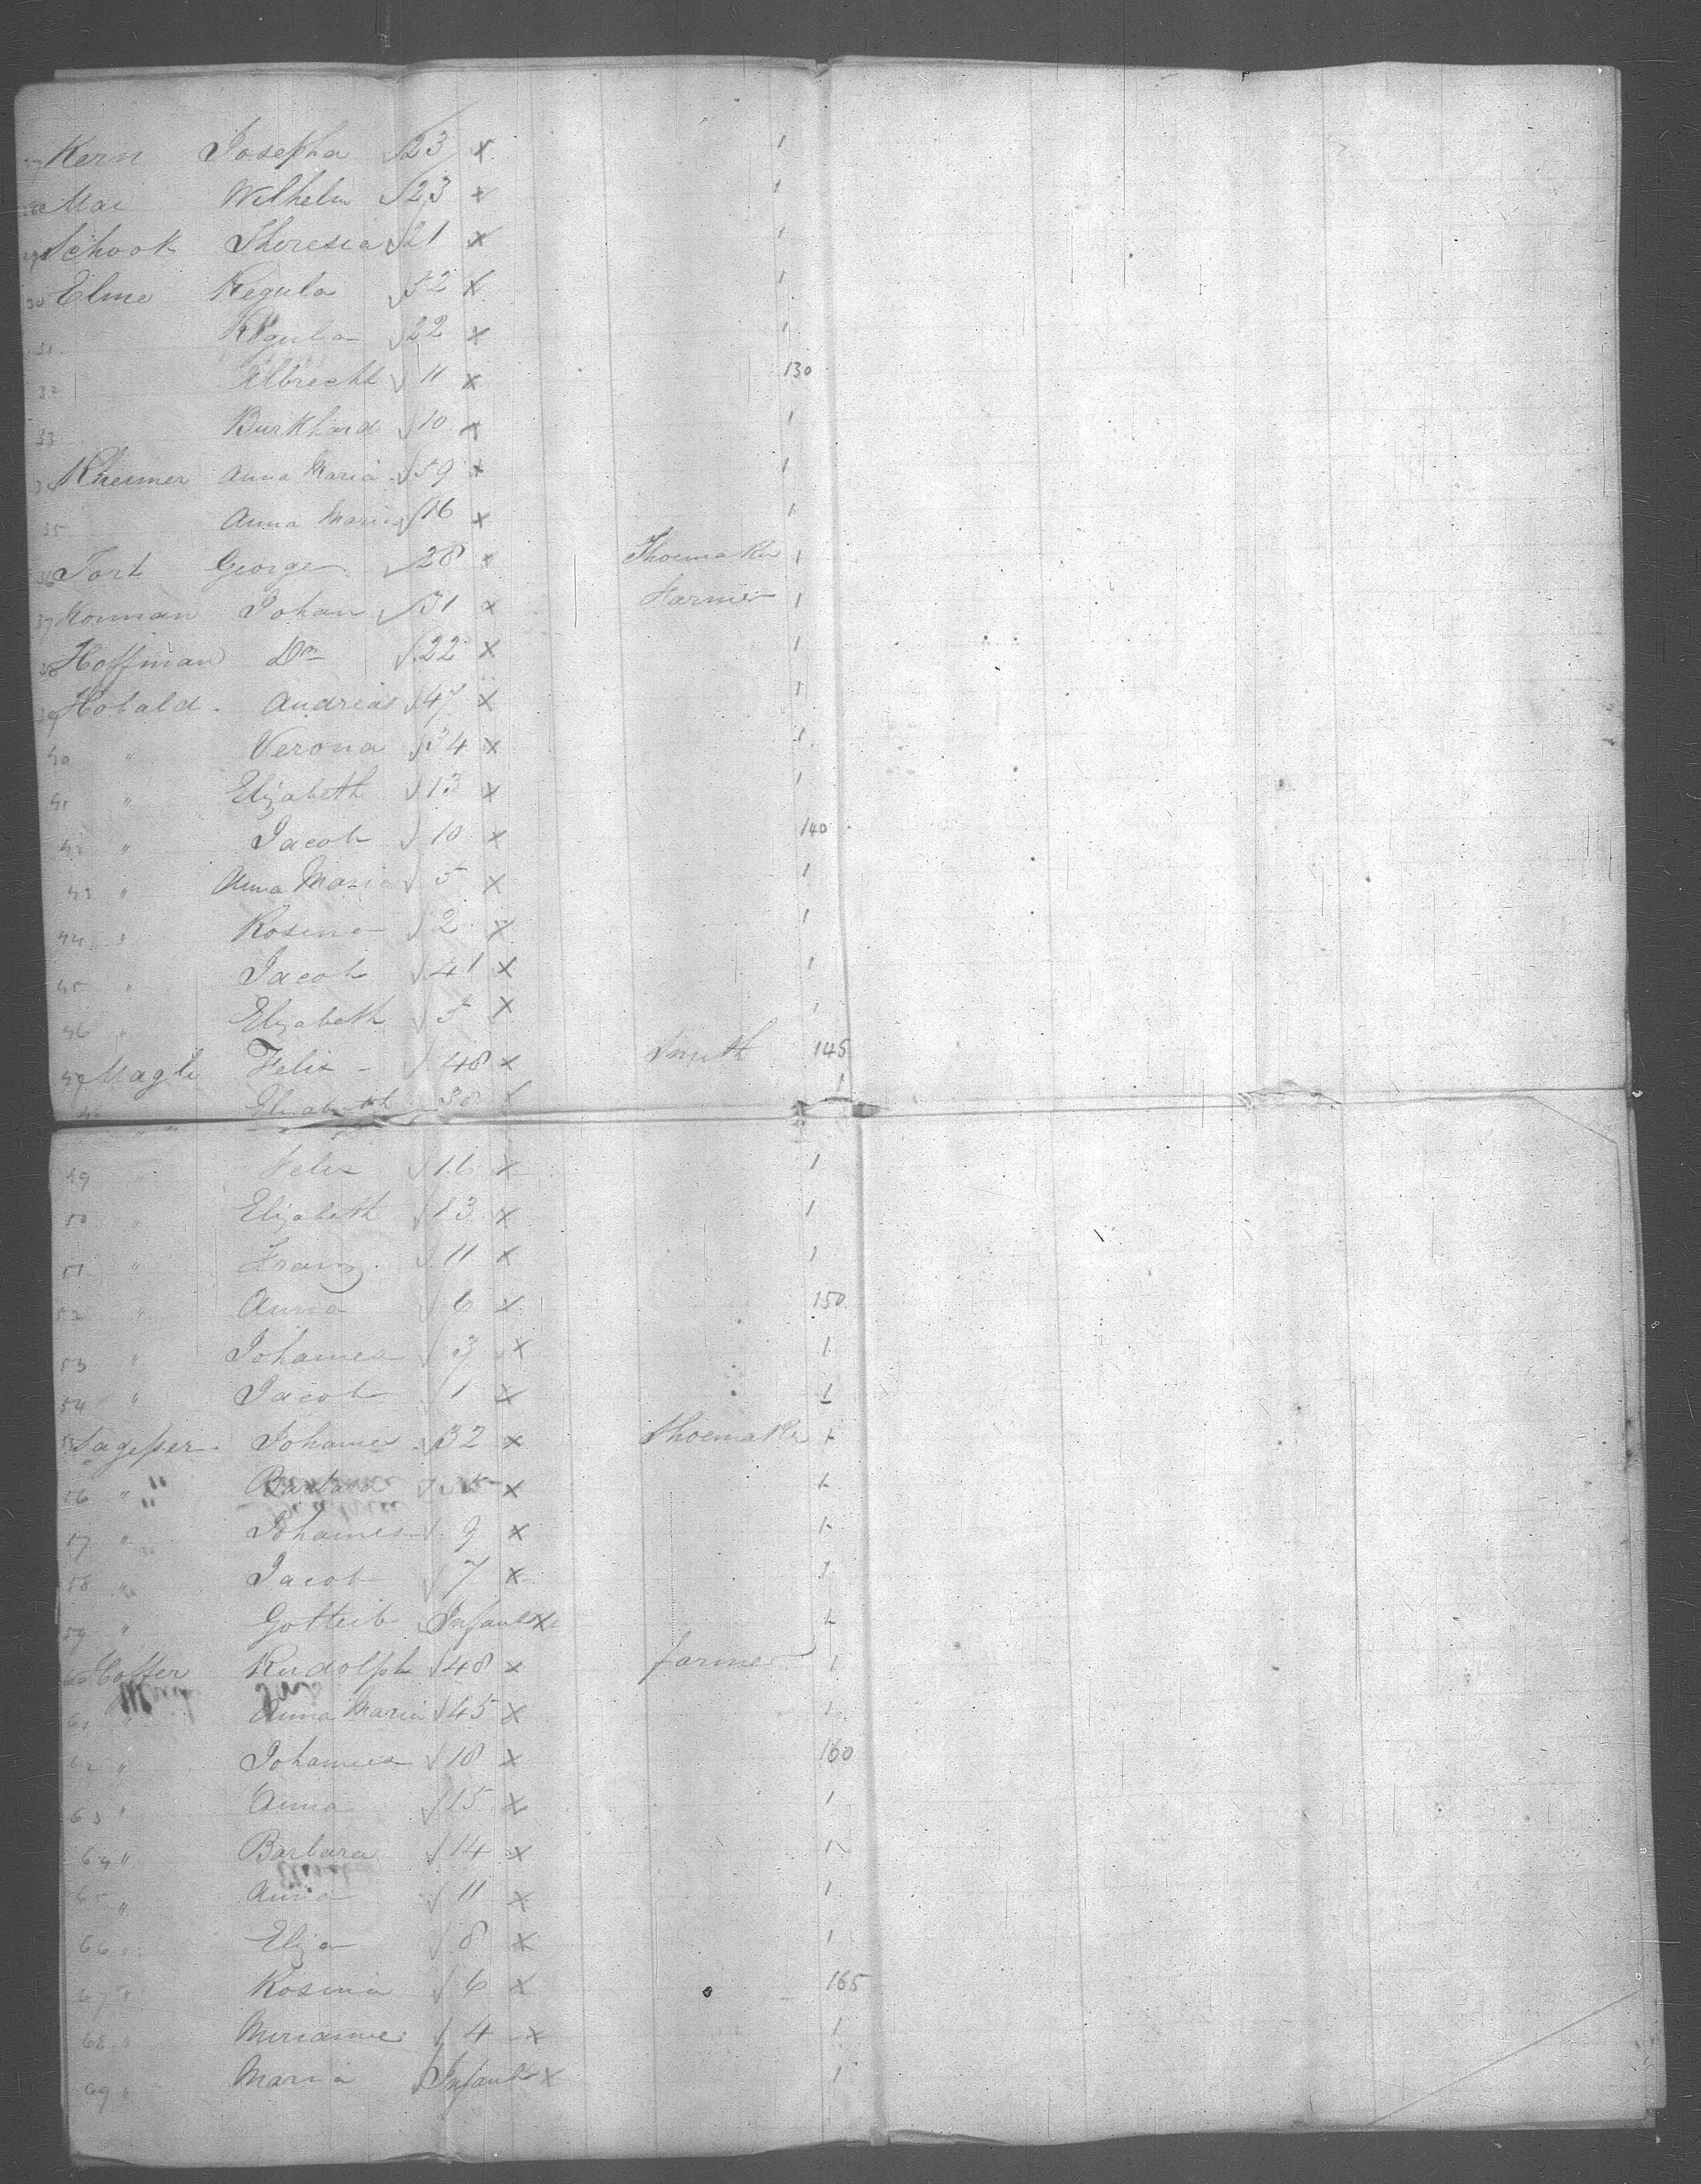 27 Kern Josepha √23 x 1
28 Mai Wilhelm √23 x 1
29 Schook Theresia √21 x 1
30 Elme Regula √52 x 1
31 Regula √22 x 1
32 Albrecht √11 x 130
33 Burkhard √10 x 1
34 Rheimer Anna Maria √59 x 1
35 Anna Maria √16 x 1
36 Tort George √28 x Shoemaker 1
37 Johan √31 x Farmer 1
38 Hoffman Do √22 x 1
39 Hobald Andreas √47 x 1
40 " Verona √34 x 1
41 " Elizabeth √13 x 1
42 " Jacob √10 x 140
43 " Anna Maria √5 x 1
44 " Rosina √2 x 1
45 " Jacob √41 x 1
46 " Elizabeth √5 x 1
47 Magli Felix √48 x Smith 145
48 Elizabeth 38 x 1
49 " Felix √16 x 1
50 " Elizabeth √13 x 1
51 " Franz √11 x 1
52 " Anna √6 x 150
53 " Johannes √3 x 1
54 " Jacob √1 x 1
55 Johannes √32 x Shoemaker 1
56 " Barbara √ x 1
57 " Johannes √9 x 1
58 " Jacob √7 x 1
59 " Gotteib Infant x 1
60 Hoffer Rudolph √48 x farmer 1
61 " Anna Maria √45 x 1
62 " Johannes √18 x 160
63 " Anna √15 x 1
64 " Barbara √14 x 1
65 " Anna √11 x 1
66 " Eliza √8 x 1
67 " Rosina √6 x 165
68 " √4 x 1
69 " Maria √Infant x 1